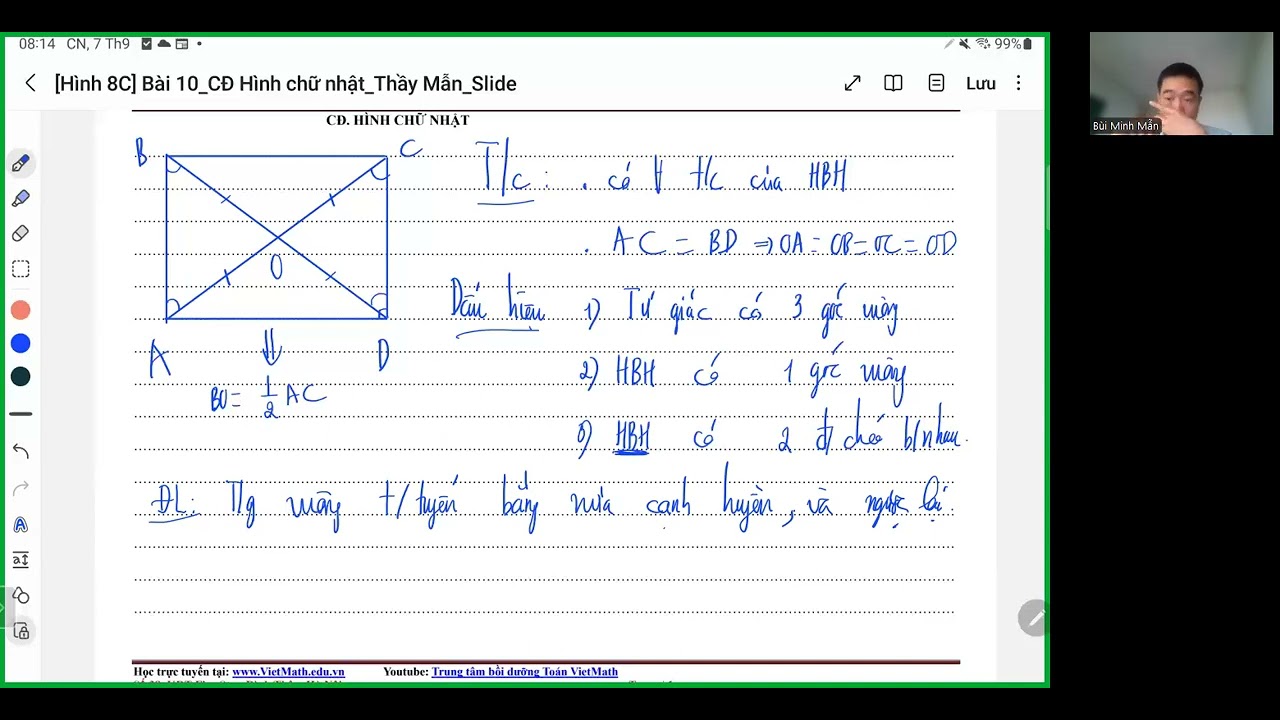 08:14 CN, 7 Th9 99%
[Hình 8C] Bài 10_CĐ Hình chữ nhật_Thầy Mẫn_Slide
Lưu
Bùi Minh Mẫn
CĐ. HÌNH CHỮ NHẬT
B C
T/c: . có ∀ t/c của HBH
. AC = BD ⇒ OA = OB = OC = OD
O
Dấu hiệu 1) Tứ giác có 3 góc vuông
A D
2) HBH có 1 góc vuông
BO = 1/2 AC
3) HBH có 2 đ/chéo b/nhau.
ĐL: T/g vuông t/tuyến bằng nửa cạnh huyền, và ngược lại.
Học trực tuyến tại: www.VietMath.edu.vn Youtube: Trung tâm bồi dưỡng Toán VietMath